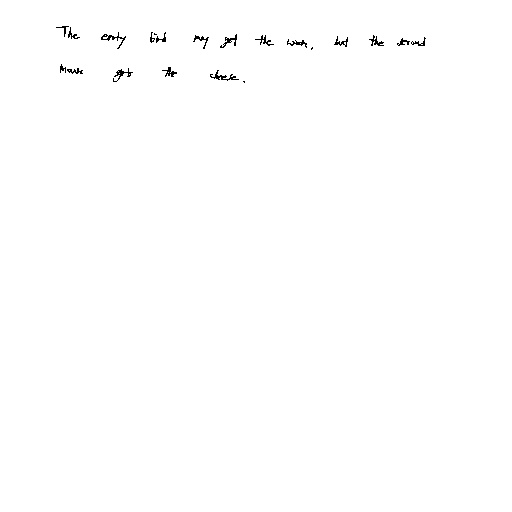 The early bird may get the worm, but the second
Mouse gets the cheese.